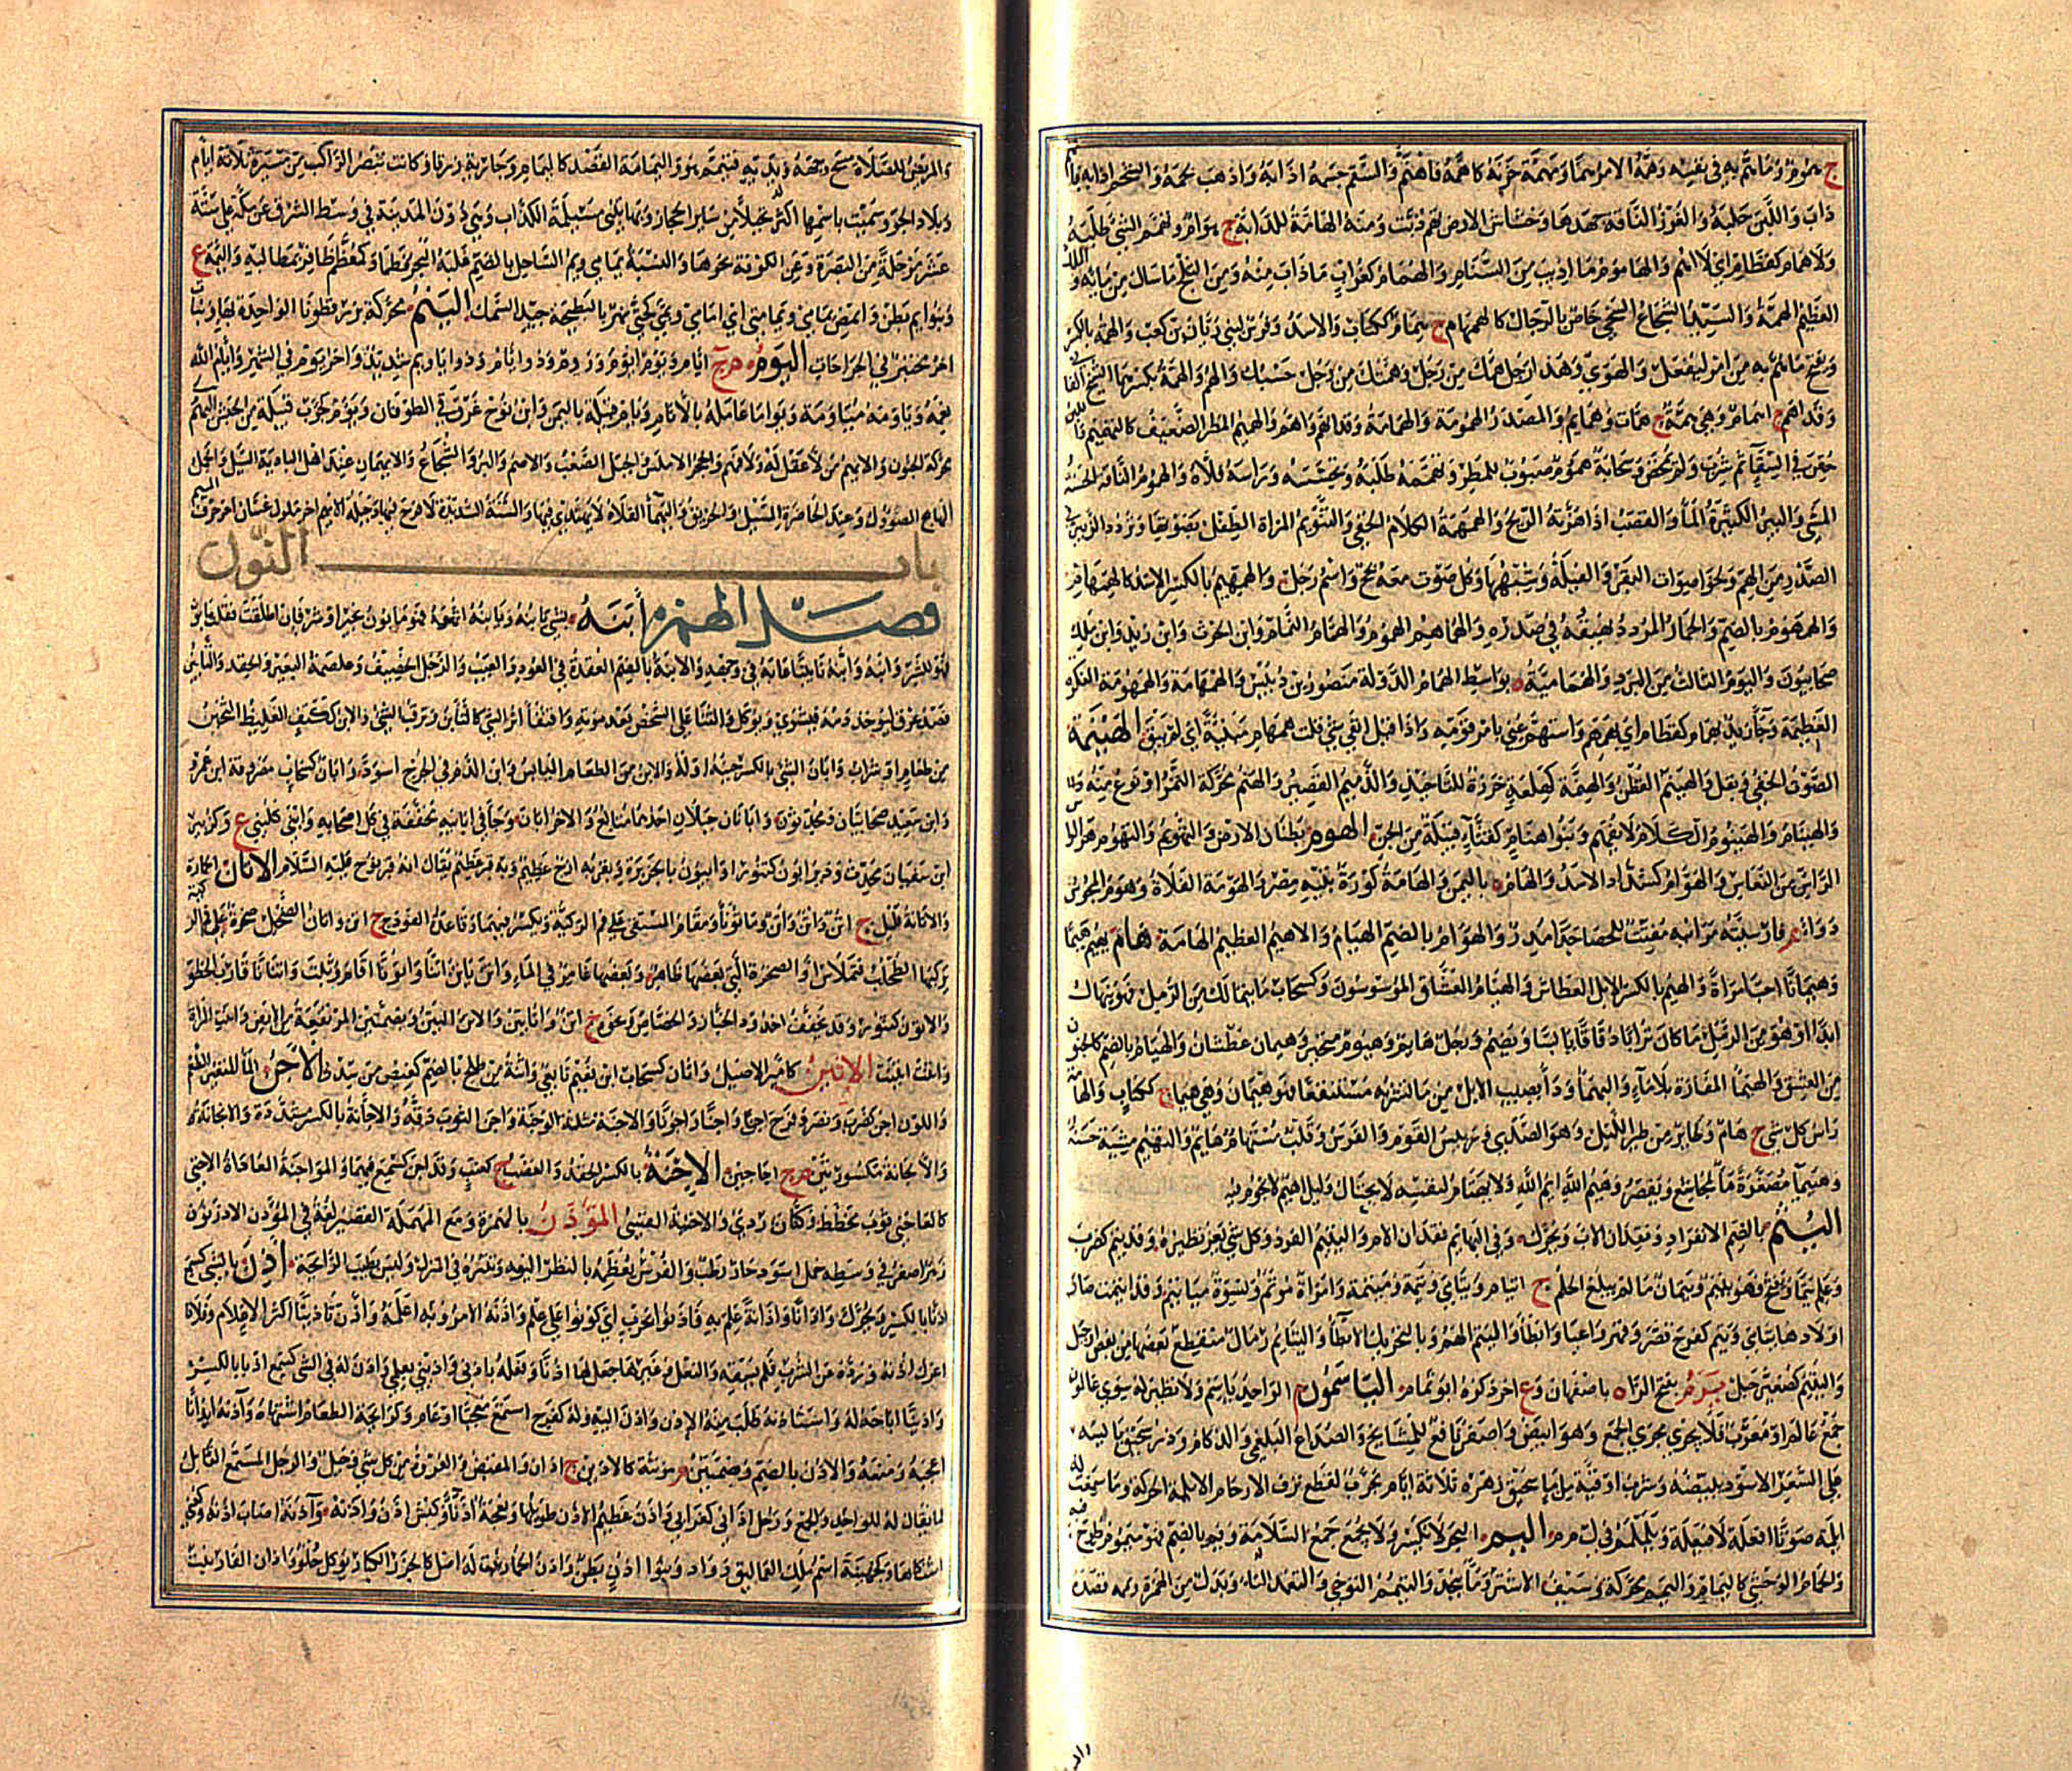 ج هموم وما هم به في نفسه وهمه الامر هما ومهمة حزنه كاهمه فاهتم والسقم جسمه اذابه واذهب لحمه والشحم اذابه فانهم
ذاب واللبن حلبه والغزر الناقة جهدها وخشاش الارض تهم دبت ومنه الهامة للدابة ج هوام وتهمم الشئ طلبه
ولا همام كقطام اي لا اهم والهاموم ما اذيب من السنام والهمام كغراب ما ذاب منه ومن الثلج ما سال من مائه والملك
العظيم الهمة والسيد الشجاع السخي خاص بالرجال كالهمهام ج همام ككتاب والاسد وفرس لبني زبان بن كعب والهمة بالكسر
ويفتح ما هم به من امر ليفعل والهوي وهذا رجل همك من رجل وهمتك من رجل حسبك والهم والهمة بكسرهما الشيخ الفاني
وقد اهم ج اهمام وهي همة ج همات وهمايم والمصدر الهمومة والهمامة وقد انهم واهم والهميم المطر الضعيف كالتهميم واللبن
حقن في السقاء ثم شرب ولم يمخض وسحابة هموم صبوب للمطر وتهممه طلبه وتحسسه وراسه فلاه والهموم الناقة الحسنة
المشي والبير الكثيرة الماء والقصب اذا هزته الريح والهمهمة الكلام الخفي وتنويم المراة الطفل بصوتها وتردد الزئير في
الصدر من الهم ونحو اصوات البقر والفيلة وشبهها وكل صوت معه بحح واسم رجل والهمهيم بالكسر الاسد كالهمهام
والهمهوم بالضم والحمار المردد نهيقه في صدره والهماهيم الهموم والهمام النمام وابن الحرث وابن زيد وابن ملك
صحابيون واليوم الثالث من البرد والهمامية ه بواسط لهمام الدولة منصور بن دبيس والهمهامة والهمهومة العكرة
العظيمة وجا زيد همام كقطام اي يهمهم واستهم عني بامر قومه واذا قيل ابقي شئ قلت همهام مبنية اي لم يبق الهينمة
الصوت الخفي وبقل والهينم القطن والهنمة كهلعة خرزة للتاخيذ والدميم القصير والهنم محركة التمر او نوع منه
والهينام والهينوم الكلام لا يفهم وبنو هنام كقثاء قبيلة من الجن الهوم بطنان الارض والتهويم والتهوم هز
الراس من النعاس والهوام كشداد الاسد والهام ه باليمن والهامة كورة بتيه مصر والهومة الفلاة وهوم المجوس
دواء م فارسيته مرانيه مفتت للحصاة جدا مدر والهوام بالضم الهيام والاهيم العظيم الهامة هام يهيم هيما
وهيمانا احب امراة والهيم بالكسر الابل العطاش والهيام العشاق الموسوسون وكسحاب ما لا يتمالك من الرمل فهو ينهال
ابدا او هو من الرمل ما كان ترابا دقاقا يابسا ويضم ورجل هائم وهيوم متحير وهيمان عطشان والهيام بالضم كالجنون
من العشق والهيما المفازة بلا ماء واليهما وداء يصيب الابل من ماء تشربه مستنقعا فهو هيمان وهي هيما ج ككتاب والهامة
راس كل شئ ج هام وطاير من طير الليل وهو الصدي ورئيس القوم والفرس وقلب مستهام هايم والتهيم مشية حسنة
وهييما مصغرة ما لمجاشع ويقصر وهيم الله ايم الله ولا يهتام لنفسه لا يحتال وليل اهيم لا نجوم فيه
اليتم بالضم الانفراد وفقدان الاب ويحرك وفي البهايم فقدان الام واليتيم الفرد وكل شئ يعز نظيره وقد يتم كضرب
وعلم يتما ويفتح وهو يتيم ويتمان ما لم يبلغ الحلم ج ايتام ويتامي ويتمة وميتمة وامراة موتم ونسوة مياتيم وقد ايتمت صار
اولادها يتامي ويتم كفرح قصر وفتر واعيا وابطا واليتم الهم وبالتحريك الابطاء واليتائم رمال منقطع بعضها من بعض
واليتيم كصغير جبل يرم بفتح الراء ه باصفهان وع اخر ذكره ابو تمام الياسمون م الواحد ياسم ولا نظير له سوي عالمون
جمع عالم او معرب فلا يجري مجري الجمع وهو ابيض واصفر نافع للمشايخ والصداع البلغمي والزكام وذر سحيق يابسه
علي الشعر الاسود يبيضه وشرب اوقية من ماء سحيق زهره ثلاثة ايام مجرب لقطع نزف الارحام الايلمة الحركة وما سمعت له
ايلمة صوتا افعلة لا فيعلة ويلملم في ل م م اليم البحر لا يكسر ولا يجمع جمع السلامة ويم بالضم فهو ميموم طرح فيه
والحمام الوحشي كاليمام واليمم محركة وسيف الاشتر وما بنجد والتيمم التوخي والتعمد الياء بدل من الهمزة ويممه قصده
والمريض للصلاة مسح وجهه ويديه فتيمم هو واليمامة القصد كاليمام وجارية زرقا كانت تبصر الراكب من مسيرة ثلاثة ايام
وبلاد الجو وسميت باسمها اكثر نخيلا من ساير الحجاز وبها تنبى مسيلمة الكذاب وهي دون المدينة في وسط الشرق عن مكة علي ستة
عشر مرحلة من البصرة وعن الكوفة نحوها والنسبة يمامي ويم الساحل بالضم غلبه البحر فطما وكمعظم ظافر بمطالبه واليمة ع
وبنو ايم بطن وامض يمامي ويمامتي اي امامي ويمي كحتي نهر بالبطيحة جيد السمك الينم محركة بزر قطونا الواحدة بهاء ونبات
اخر يختبز في الجراحات اليوم م ج ايام ويوم ايوم ويوم ووم وذو ايام وذو اياويم شديد واخر يوم في الشهر وايام الله
نعمه وياومه مياومة ويواما عامله بالايام ويام قبيلة باليمن وابن نوح غرق في الطوفان ويوم كحرب قبيلة من الحبش اليهم
محركة الجنون والايهم من لا عقل له ولا فهم والحجر الاملس والجبل الصعب والاصم والبر والشجاع والايهمان عند اهل البادية السيل والجمل
الهائج الصؤول وعند الحاضرة السيل والحريق واليهما الفلاة لا يهتدي فيها والسنة الشديدة لا فرج فيها وجبلة بن الايهم اخر ملوك غسان اخر حرف الميم
باب النون
فصل الهمزة ابنه بشئ يابنه ويابنه اتهمه فهو مابون بخير او شر فان اطلقت فقلت مابون
فهو للشر وابنه وابنه تابينا عابه في وجهه والابنة بالضم العقدة في العود والعيب والرجل الخفيف وغلصمة البعير والحقد والتابين
فصد عرق ليؤخذ دمه فيشوي ويؤكل والثناء علي الشخص بعد موته واقتفاء اثر الشئ كالتابن وترقب الشئ والابن ككتف الغليظ الثخين
من طعام او شراب وابان الشئ بالكسر حينه او اوله والابن من الطعام اليابس وابن الدم في الجرح اسود وابان كسحاب مصروفة ابن عمرو
وابن سعيد صحابيان ومحدثون وابانان جبلان احدهما متالع والاخر ابان وجا في ابانته مخففة في كل اصحابه وابني كلبني ع وكزبير
ابن سفيان محدث ودير ابون كتنور او ابيون بالجزيرة وبقربه ازج عظيم وبه قبر عظيم يقال انه قبر نوح عليه السلام الاتان الحمارة
والاتانة قليل ج اتن واتن واتن وماتونا ومقام المستقي علي فم الركية ويكسر فيهما وقاعدة الفودج ج اتن واتان الضحل صخرة علي فم الركي
يركبها الطحلب فتملاس او الصخرة التي بعضها ظاهر وبعضها غامر في الماء واتن ياتن اتنا واتونا اقام وثبت واتنانا قارب الخطو
والاتون كتنور وقد يخفف اخدود الجيار والجصاص ونحوه ج اتن واتاتين والاتن اليتن وبضمتين المرتفعة من الارض واتنت المراة
واتنت ايتنت الاثين كامير الاصيل واثان كسحاب ابن نعيم تابعي واثنة من طلح بالضم كعيص من سدر الاجن الماء المتغير الطعم
واللون اجن كضرب ونصر وفرح اجنا واجنا واجونا والاجنة مثلثة الوجنة واجن الثوب دقه والاجانة بالكسر مشددة والايجانة
والانجانة مكسورتين م ج اجاجين الاحنة بالكسر الحقد والغضب ج كعنب وقد احن كسمع فيهما والمواحنة المعاداة الاخني
كالعاجني ثوب مخطط وكتان ردي والاخنية القسي المؤدن بالهمزة ومع المهملة القصير لغة في المؤذن الاذريون
زهر اصفر في وسطه خمل اسود حار رطب والفرس تعظمه بالنظر اليه وتنثره في المنزل وليس بطيب الرائحة اذن بالشئ كسمع
اذنا بالكسر ويحرك واذانا واذانة علم به فاذنوا بحرب اي كونوا علي علم واذنه الامر وبه اعلمه واذن تاذينا اكثر الاعلام وفلانا
عرك اذنه ورده عن الشرب فلم يسقه والنعل وغيرها جعل لها اذنا وفعله باذني واذيني بعلمي واذن له في الشئ كسمع اذنا بالكسر
واذينا اباحه له واستاذنه طلب منه الاذن واذن اليه وله كفرح استمع معجبا او عام ولرائحة الطعام اشتهاه وآذنه ايذانا
اعجبه ومنعه والاذن بالضم وبضمتين م مؤنثة كالاذين ج اذان والمقبض والعروة من كل شئ وجبل والرجل المستمع القابل
لما يقال له للواحد والجمع ورجل اذاني كغرابي واذن عظيم الاذن طويلها ونعجة اذنا وكبش اذن واذنه وآذنه اصاب اذنه وكعني
اشتكاها وكجهينة اسم ملك العماليق وواد وبنو اذن بطن واذن الحمار نبت له اصل كالجزر الكبار يؤكل حلو واذان الفار نبت